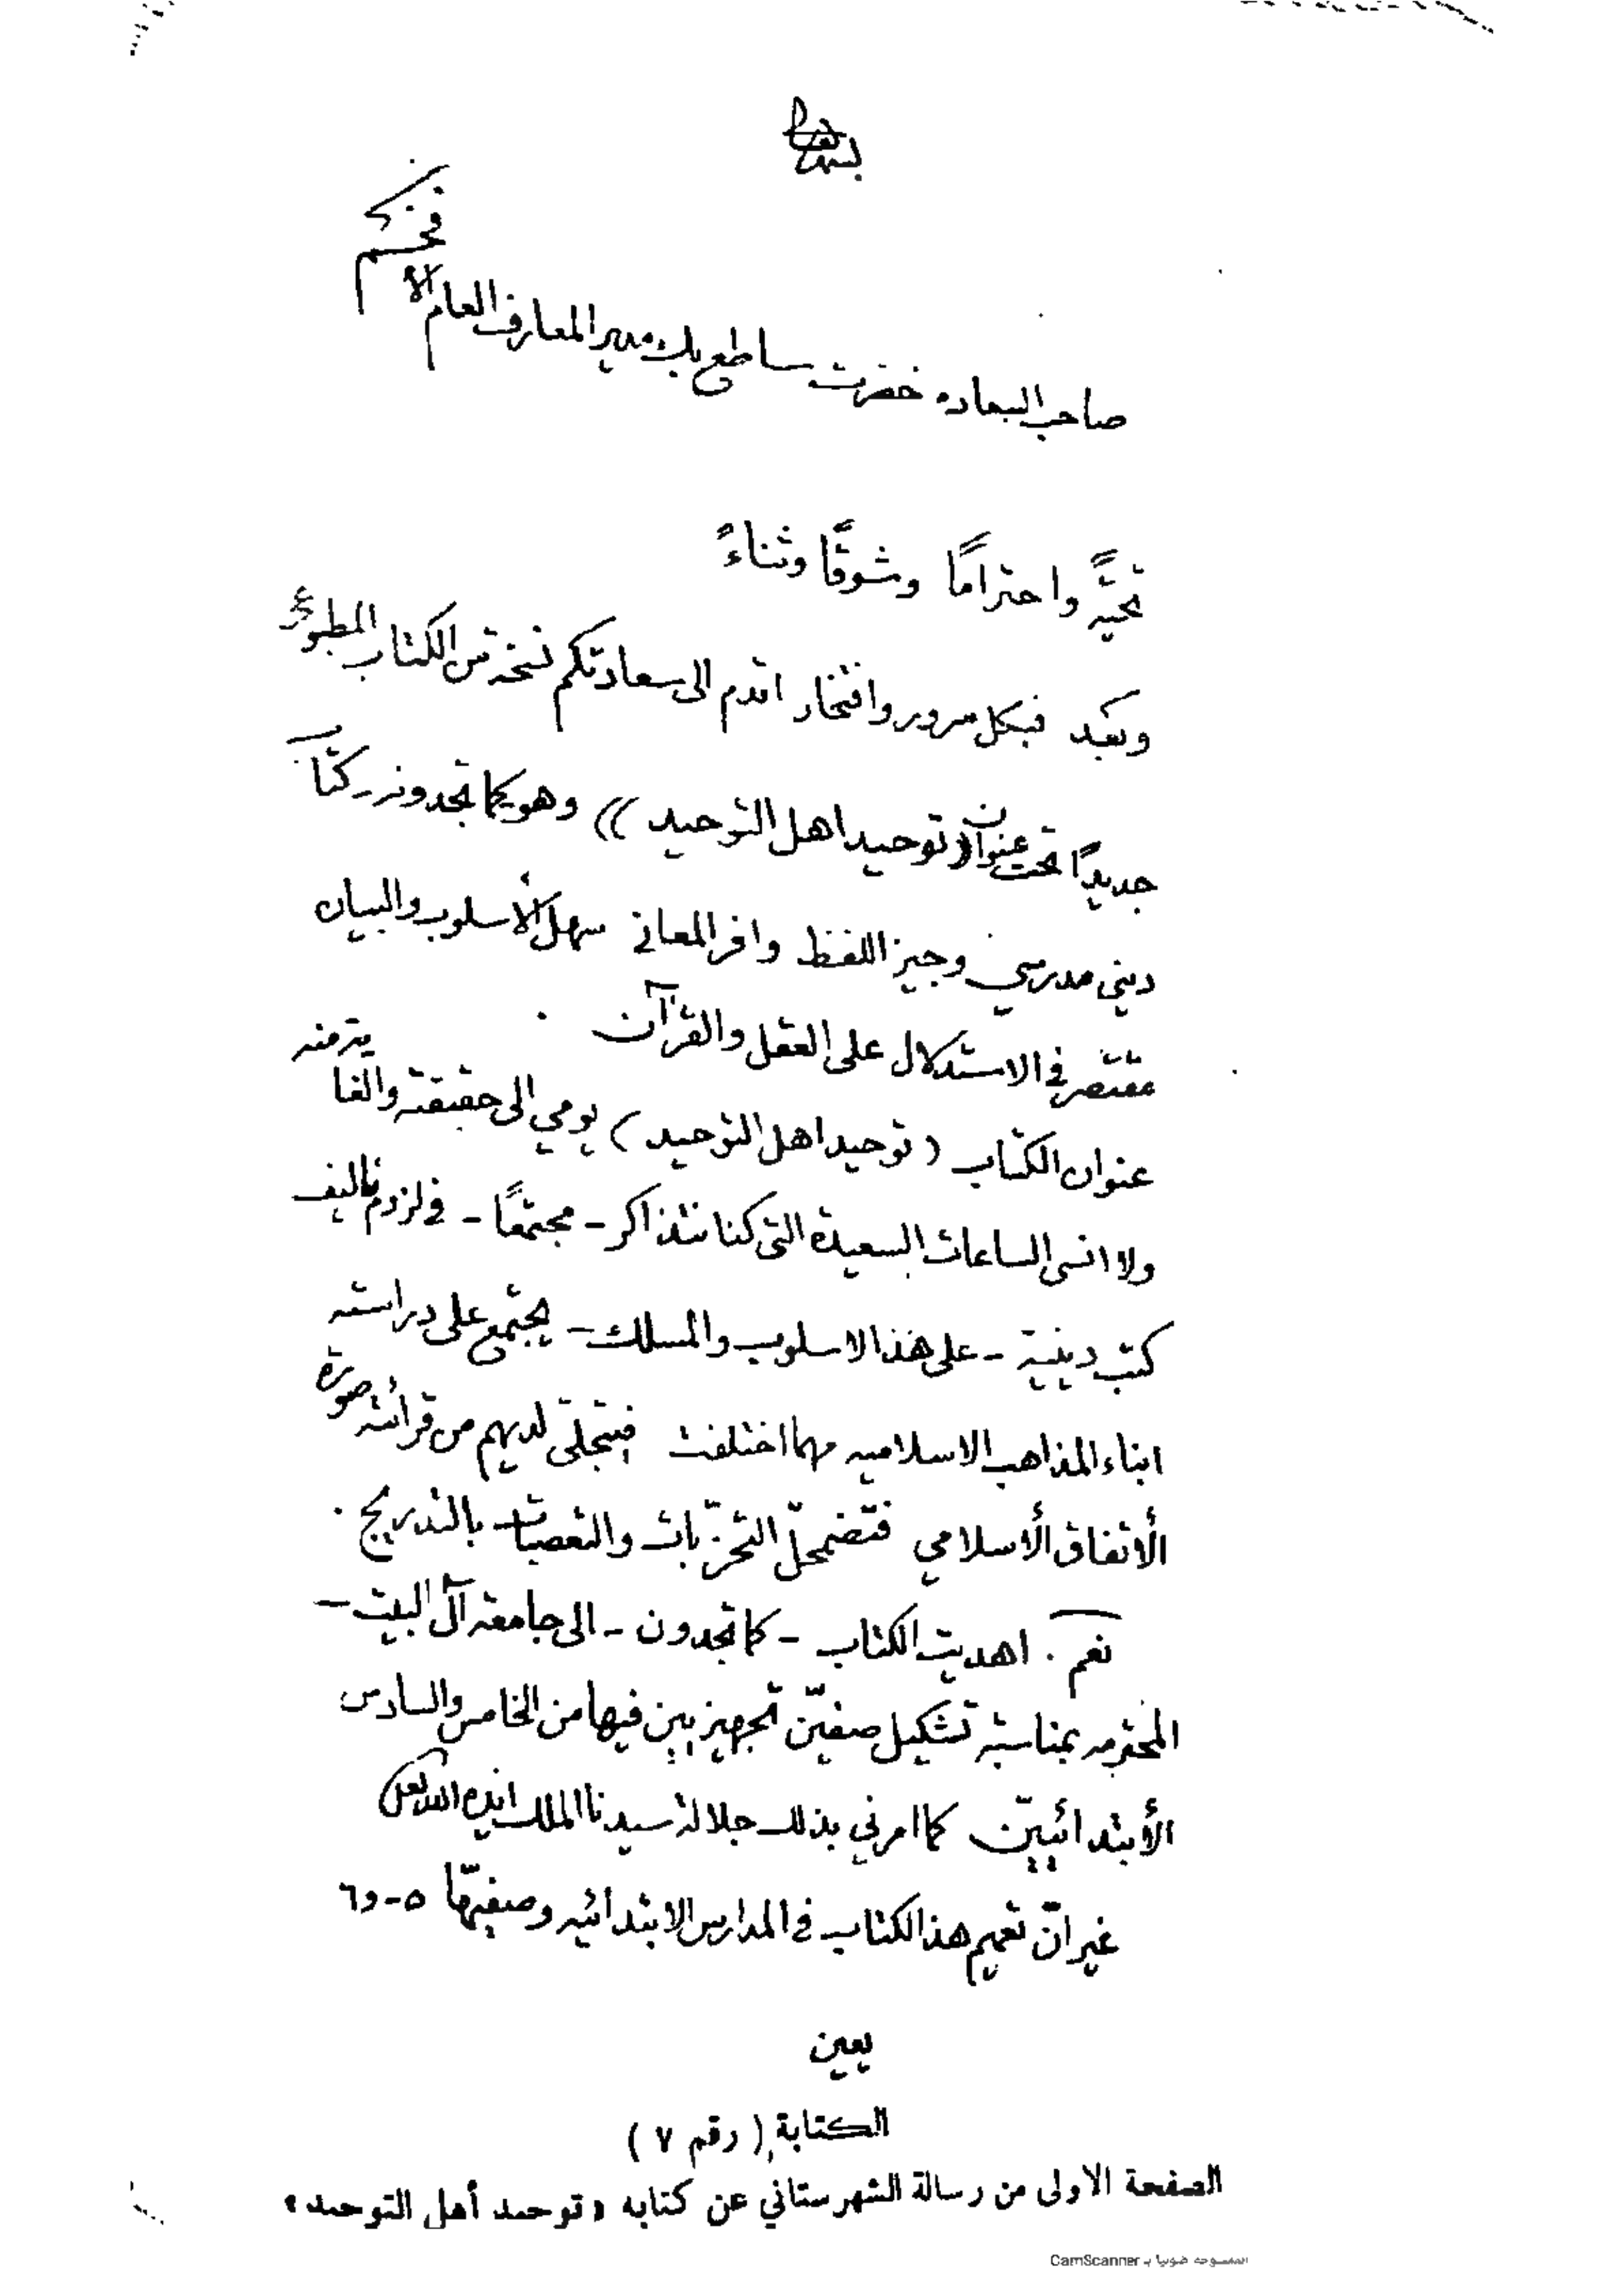 بسم الله
صاحب السعاده حضرت ساطع بك مدير المعارف العام الأفخم
تحيّةً واحترامًا وشوقًا وثناءً
وبعد فبكل سرور وافتخار اقدم الى سعادتكم نسخة من الكتاب المطبوع
جديدًا تحت عنوان ((توحيد اهل التوحيد)) وهو كما تجدونه - كتاب
ديني مدرسي وجيز اللفظ وافر المعاني سهل الأسلوب والبيان
مقتصر في الاستدلال على العقل والقرآن .
عنوان الكتاب (توحيد اهل التوحيد) يومي الى حقيقته والغاية منه
ولا انسى الساعات السعيدة التي كنا نتذاكر - مجتمعًا - في لزوم تأليف
كتب دينية - على هذا الاسلوب والمسلك - يجتمع على دراسته
ابناء المذاهب الاسلاميه مهما اختلفت فيتجلّى لديهم من قرائته صورة
الأتفاق الأسلامي فتضمحلّ التحزّبات والتعصبات بالتدريج .
نعم . اهديت الكتاب - كما تجدون - الى جامعة آل البيت -
المحترمه بمناسبة تشكيل صفيّن تجهيزيين فيها من الخامس والسادس
الأبتدائييّن كما امرني بذلك جلالة سيدنا الملك ايده الله تعالى
غير انّ تعميم هذا الكتاب في المدارس الابتدائيه وصفيّها ٥-و٦
يعين
الكتابة (رقم ٧)
الصفحة الاولى من رسالة الشهرستاني عن كتابه «توحيد أهل التوحيد»
الممسوحة ضوئيا بـ CamScanner